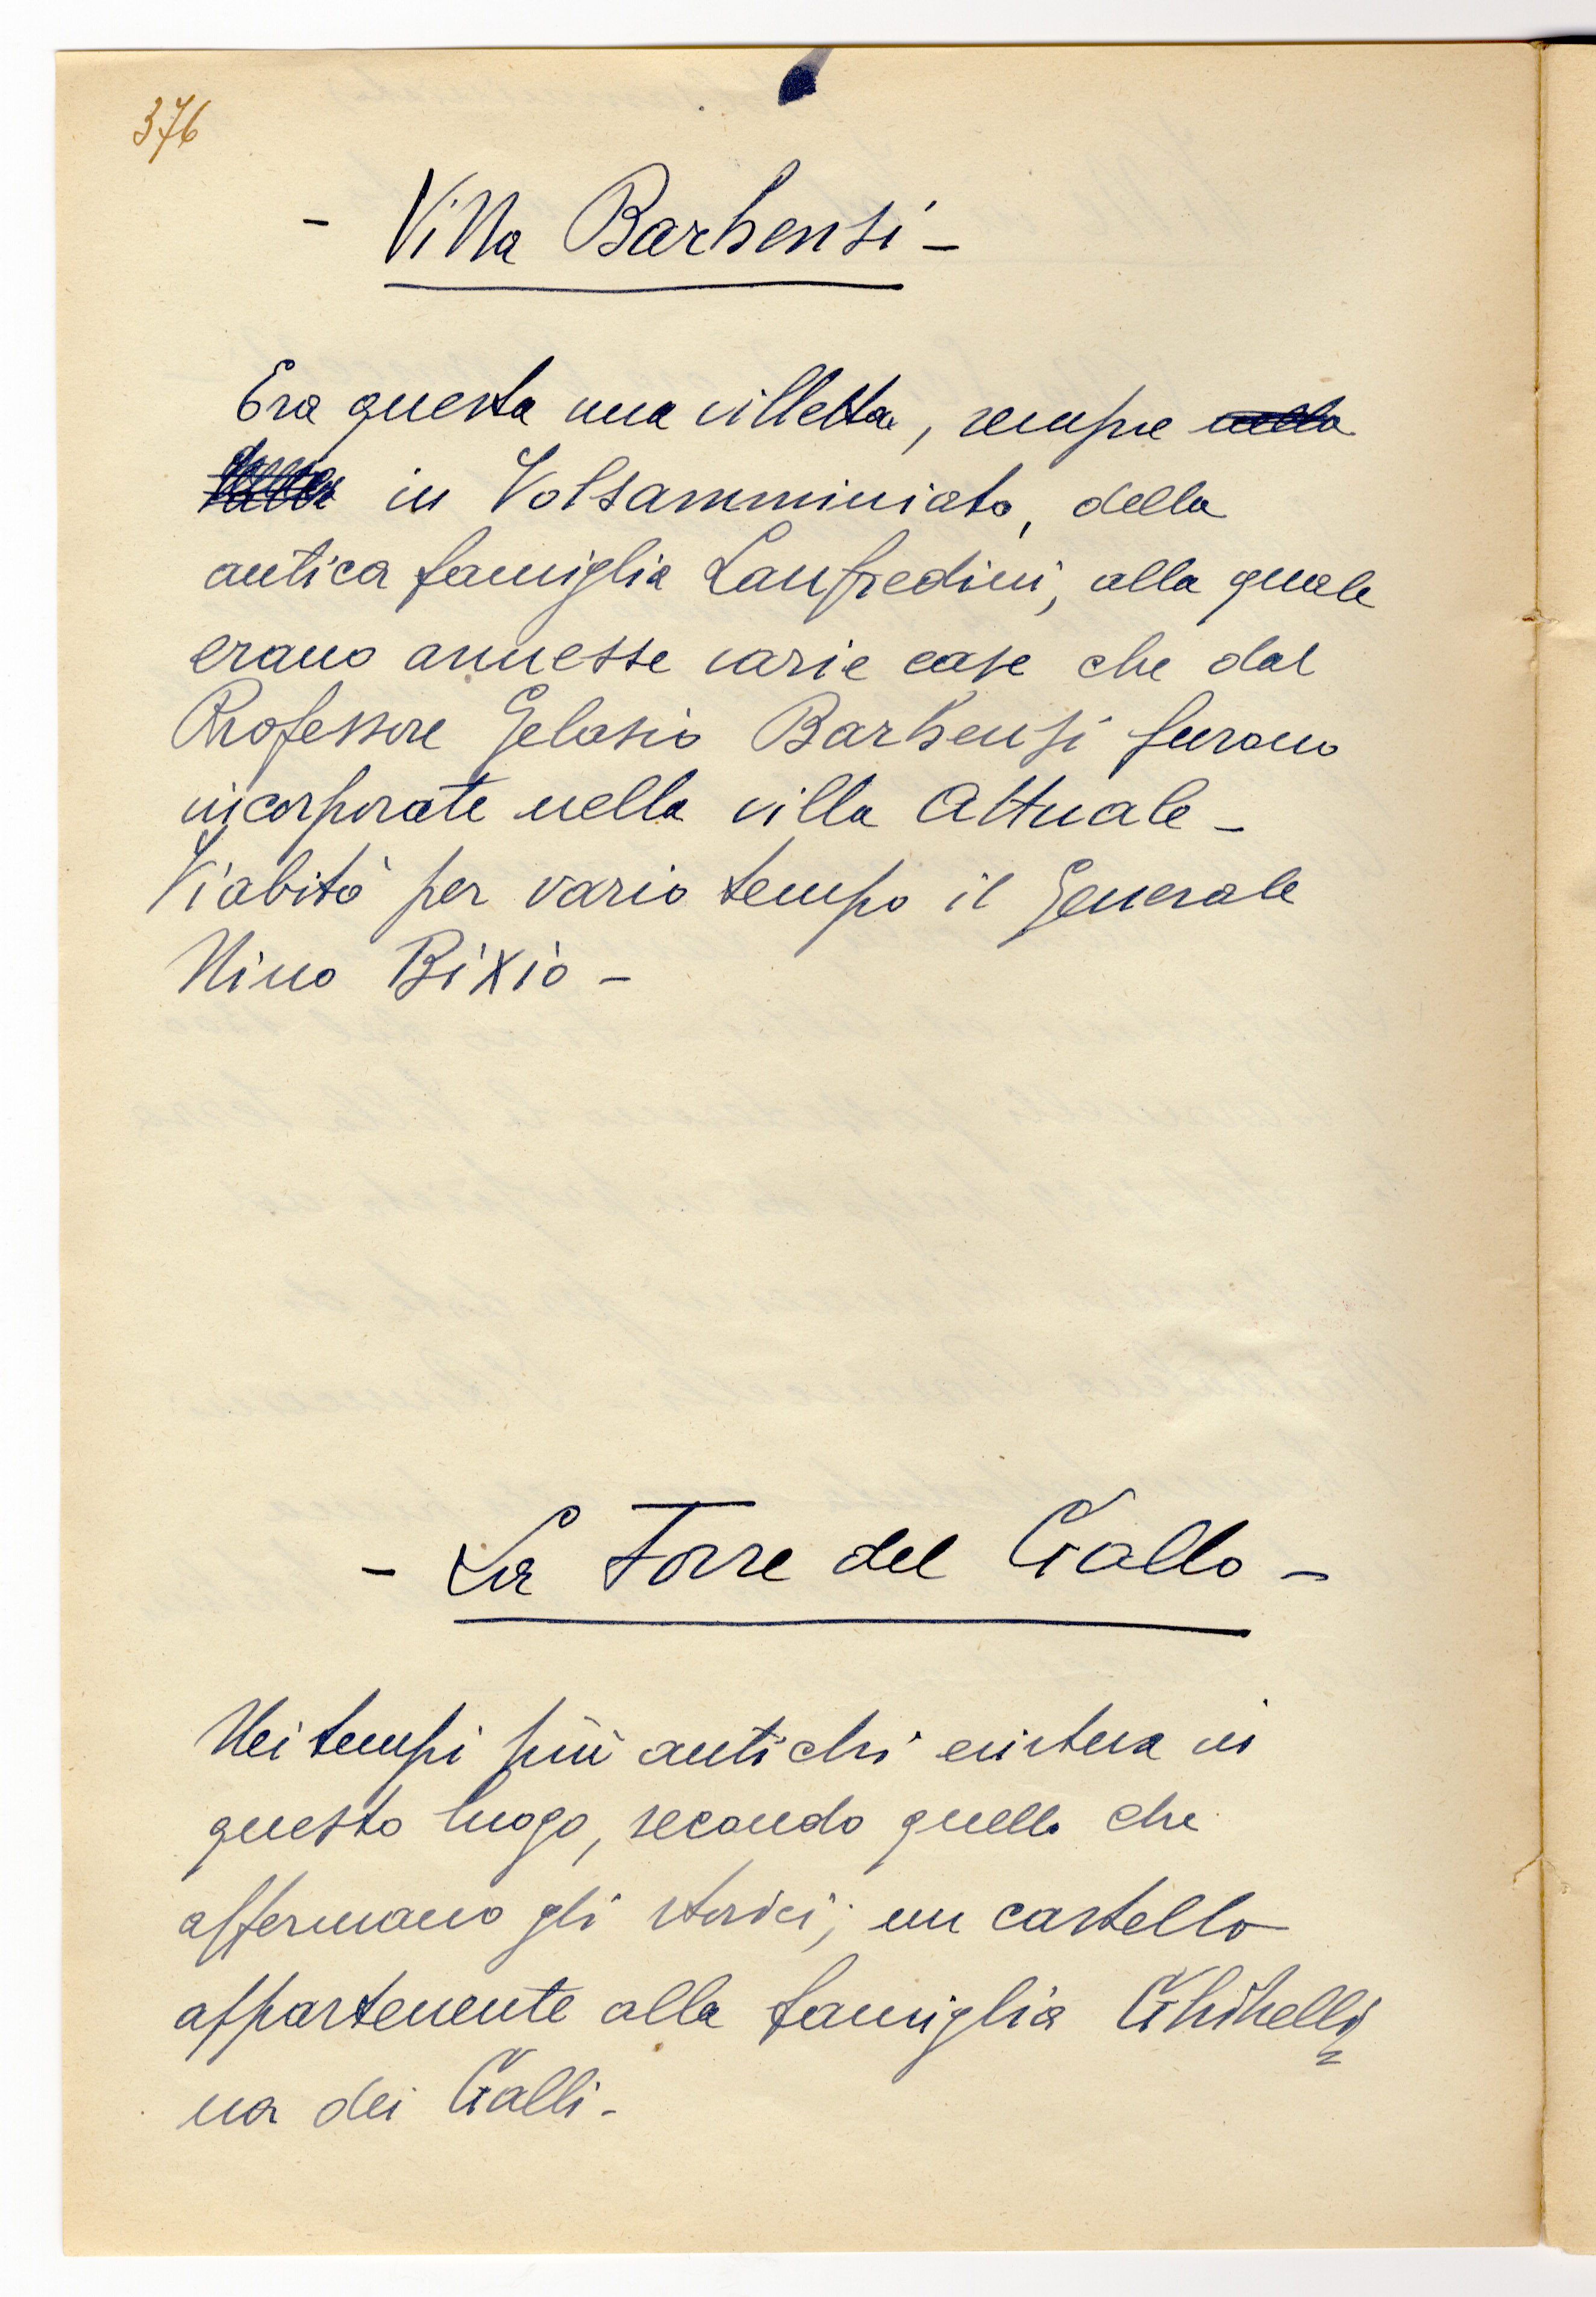 376
- Villa Barbensi -
Era questa una villetta, sempre nella
in Volsamminiato, della
antica famiglia Lanfredini, alla quale
erano annesse varie case che dal
Professore Gelasio Barbensi furono
incorporate nella villa Attuale -
Vi abitò per vario tempo il Generale
Nino Bixio -
- La Torre del Gallo -
Nei tempi più antichi esisteva in
questo luogo, secondo quello che
affermano gli storici, un castello
appartenente alla famiglia Ghibelli=
na dei Galli -